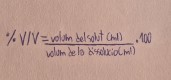 % V/V = volum del solut (ml) / volum de la dissolució (ml) · 100